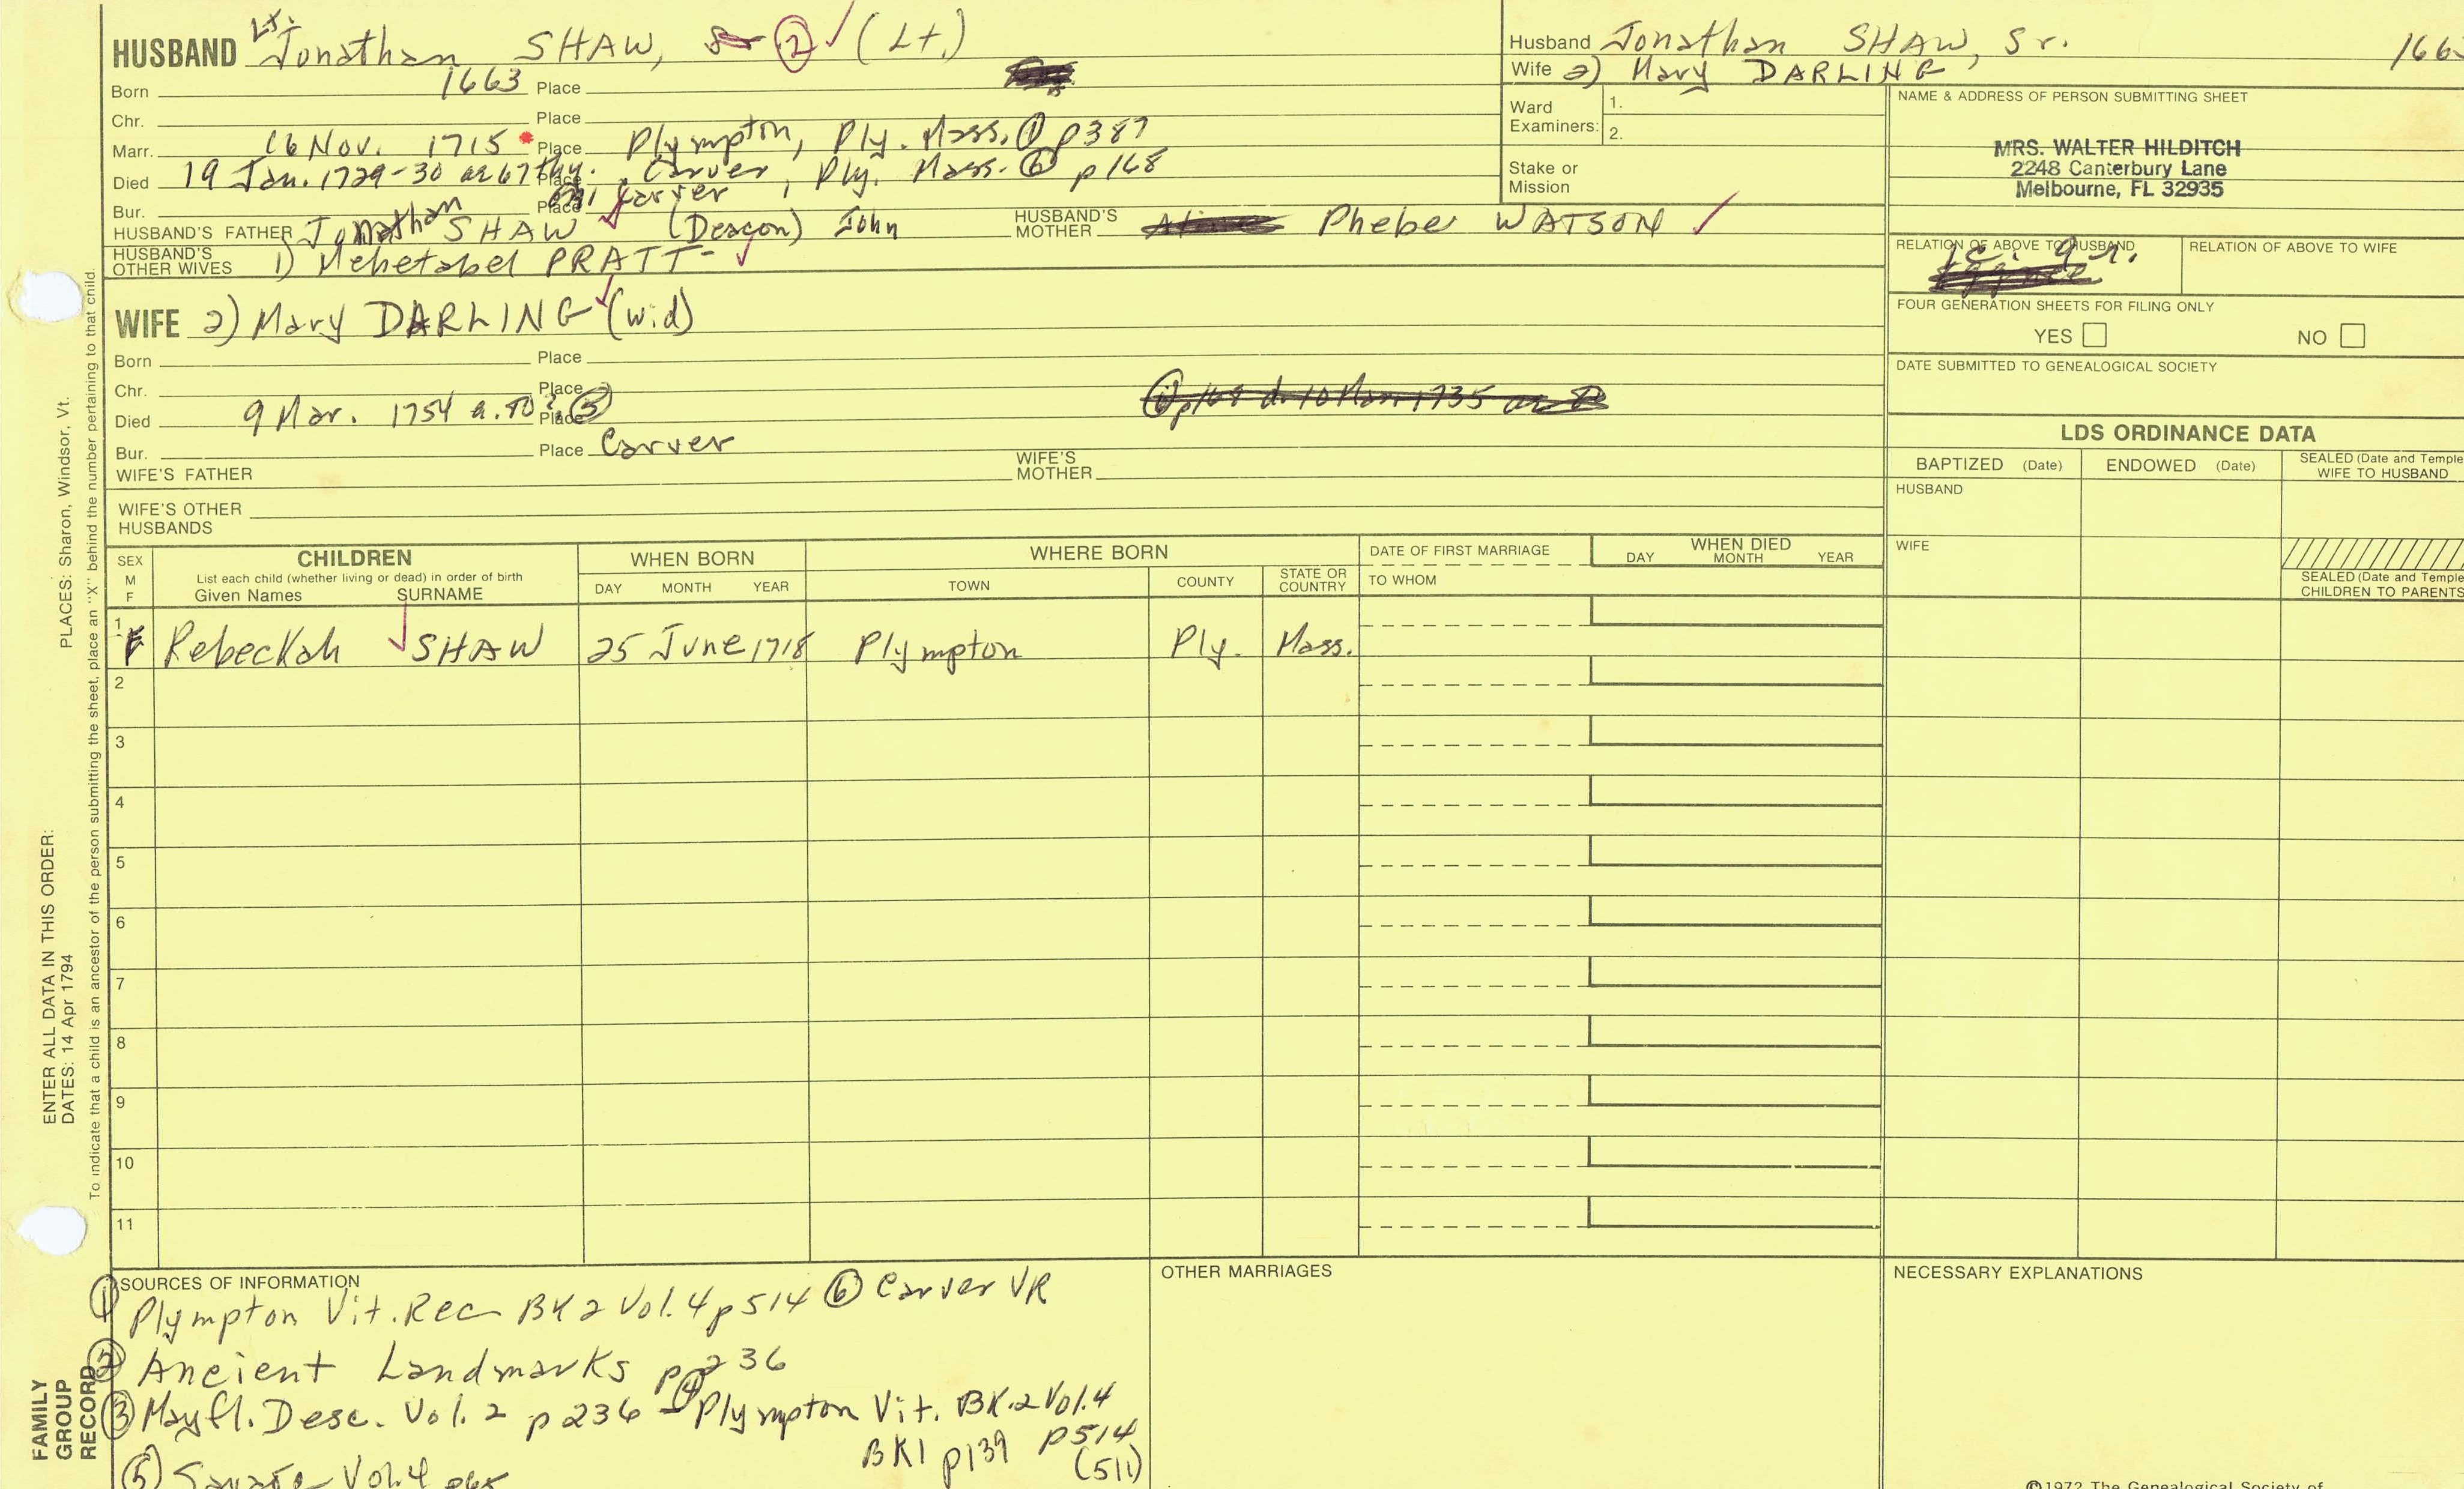 HUSBAND Lt. Jonathan SHAW, Sr ② (Lt.)
Born 1663 Place
Chr. Place
Marr. 16 Nov. 1715 Place Plympton, Ply. Mass. ① p387
Died 19 Jan. 1729-30 ae 67thy. Place Carver, Ply. Mass. ⑥ p168
Bur. Place Carver
HUSBAND'S FATHER Jonathan SHAW (Deacon) John HUSBAND'S MOTHER Phebe WATSON
HUSBAND'S OTHER WIVES 1) Mehetabel PRATT
WIFE 2) Mary DARLING (wid)
Born Place
Chr. Place
Died 9 Mar. 1754 a. 80? Place ⑤
⑥ p168 d. 10 Mar 1735
Bur. Place Carver
WIFE'S FATHER WIFE'S MOTHER
WIFE'S OTHER HUSBANDS
Husband Jonathan SHAW, Sr. 166
Wife 2) Mary DARLING
Ward Examiners: 1.
2.
Stake or Mission
NAME & ADDRESS OF PERSON SUBMITTING SHEET
MRS. WALTER HILDITCH
2248 Canterbury Lane
Melbourne, FL 32935
RELATION OF ABOVE TO HUSBAND RELATION OF ABOVE TO WIFE
FOUR GENERATION SHEETS FOR FILING ONLY
YES NO
DATE SUBMITTED TO GENEALOGICAL SOCIETY
LDS ORDINANCE DATA
BAPTIZED (Date) ENDOWED (Date) SEALED (Date and Temple WIFE TO HUSBAND
HUSBAND
WIFE
SEALED (Date and Temple CHILDREN TO PARENTS
SEX M F
CHILDREN
List each child (whether living or dead) in order of birth
Given Names SURNAME
WHEN BORN
DAY MONTH YEAR
WHERE BORN
TOWN COUNTY STATE OR COUNTRY
DATE OF FIRST MARRIAGE
TO WHOM
WHEN DIED
DAY MONTH YEAR
1 F Rebeckah SHAW 25 June 1718 Plympton Ply. Mass.
2
3
4
5
6
7
8
9
10
11
SOURCES OF INFORMATION
① Plympton Vit. Rec BK 2 Vol. 4 p514 ⑥ Carver VR
② Ancient Landmarks p 236
③ Mayfl. Desc. Vol. 2 p236 - ④ Plympton Vit. BK.2 Vol.4
BK1 p139 p514
(511)
⑤ Vol. 4
OTHER MARRIAGES
NECESSARY EXPLANATIONS
©1972 The Genealogical Society of
PLACES: Sharon, Windsor, Vt.
ENTER ALL DATA IN THIS ORDER:
DATES: 14 Apr 1794
To indicate that a child is an ancestor of the person submitting the sheet, place an "X" behind the number pertaining to that child.
FAMILY
GROUP
RECORD